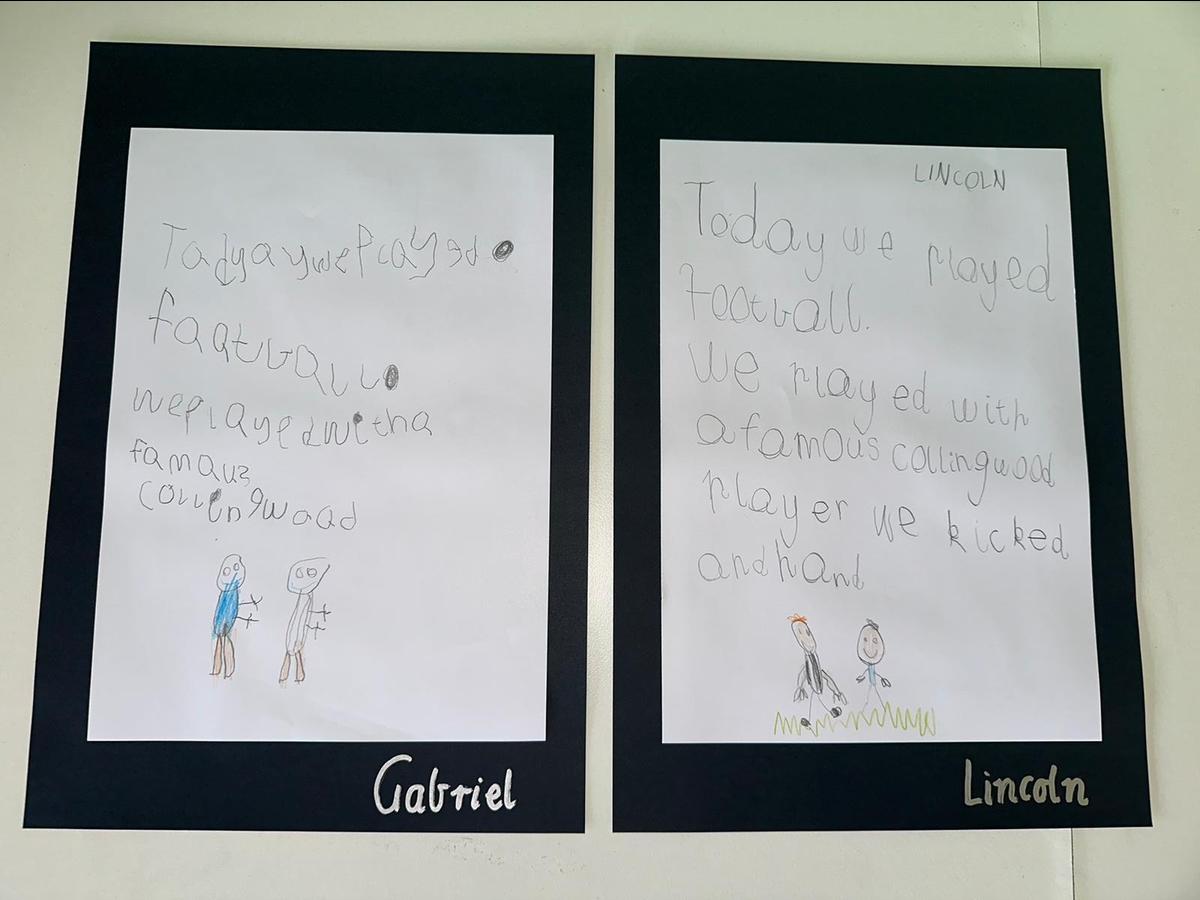 Tadyaywe Played
faqtvall
weplayedwitha
famaus
collingwaad
Gabriel
LINCOLN
Today we played
football.
We played with
a famous collingwood
player we kicked
and hand
Lincoln